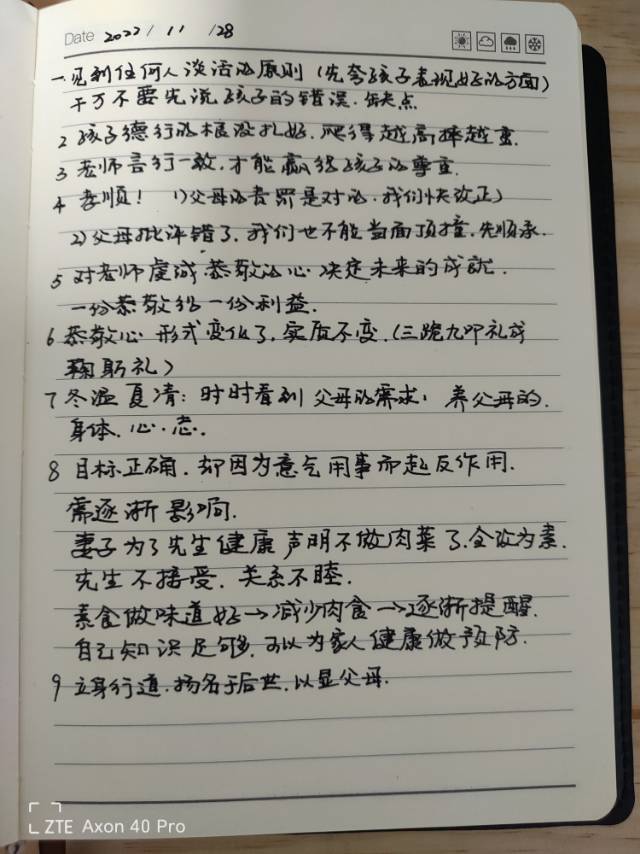 Date 2022/11/28
一.见到任何人谈话的原则(先夸孩子表现好的方面)
千万不要先说孩子的错误.缺点.
2 孩子德行的根没扎好.爬得越高摔越重.
3 老师言行一致.才能赢得孩子的尊重.
4 孝顺! 1)父母的责罚是对的.我们快改正)
2)父母批评错了.我们也不能当面顶撞.先顺承.
5 对老师虔诚 恭敬的心 决定未来的成就.
一份恭敬给一份利益.
6 恭敬心 形式变化了.实质不变.(三跪九叩礼或
鞠躬礼)
7 冬温夏凊:时时看到父母的需求,养父母的.
身体.心.志.
8 目标正确.却因为意气用事而起反作用.
需逐渐影响.
妻子为了先生健康声明不做肉菜了.全改为素.
先生不接受.关系不睦.
素食做味道好→减少肉食→逐渐提醒.
自己知识足够.可以为家人健康做预防.
9 立身行道.扬名于后世.以显父母.
ZTE Axon 40 Pro